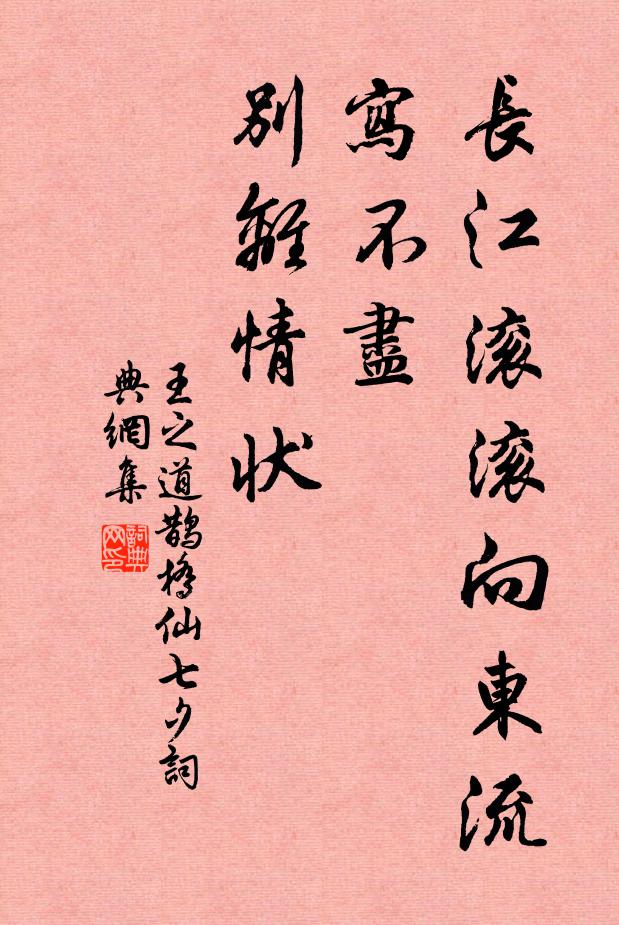 長江滚滚向東流
寫不盡
別離情狀
王之道鵲橋仙七夕詞
典網集
詞典
网印